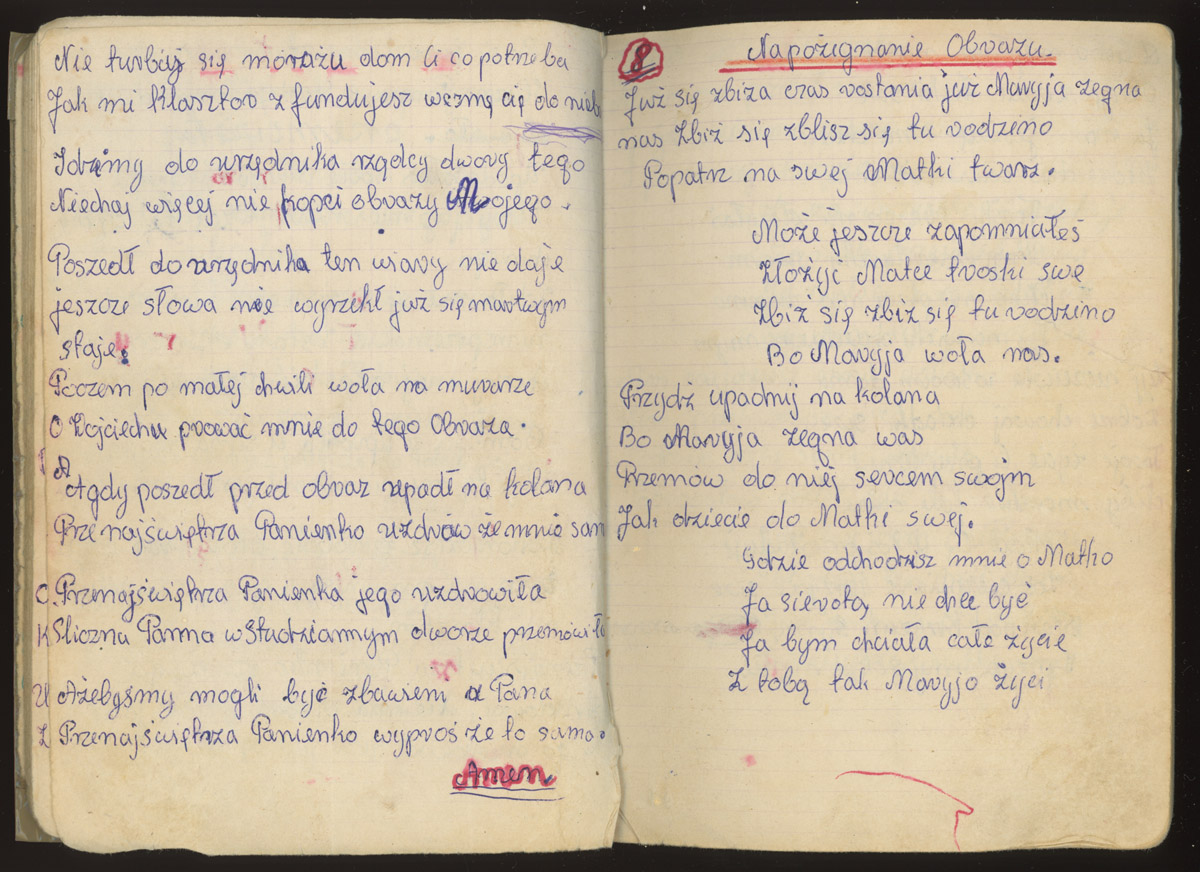 Nie turbuj się morażu dom li co potrzeba
Jak mi klasztor z fundujesz wezmę cię do nieb
Idzimy do urzędnika rządcy dwory tego
Niechaj więcej nie kopci obrazy Mojego.
Poszedł do urzędnika ten wiary nie daje
jeszcze słowa nie wyrzekł już się martwym
staje.
Poczem po małej chwili woła na murarze
O Wojciechu prować mnie do tego Obraza.
A gdy poszedł przed obraz upadł na kolana
Przenajświętrza Panienko uzdrów żemnie sam
Przenajświętrza Panienka jego uzdrowiła
Śliczna Panna w Studziannym dworze przemówiła
Ażebyśmy mogli być zbawiem u Pana
Przenajświętrza Panienko wyproś że to sama.
Amen.
8 Napożegnanie Obrazu.
Już się zbiża czas rostania już Maryja żegna
nas Zbiż się zblisz się tu rodzino
Popatrz na swej Matki twarz.
Może jeszcze zapomniałeś
Złożyć Matce troski swe
Zbiż się zbiż się tu rodzino
Bo Maryja woła nas.
Przydź upadnij na kolana
Bo Maryja żegna was
Przemów do niej sercem swojm
Jak dziecie do Matki swej.
Gdzie odchodzisz mnie o Matko
Ja sierotą nie chce być
Ja bym chciała całe życie
Z tobą tak Maryjo życi